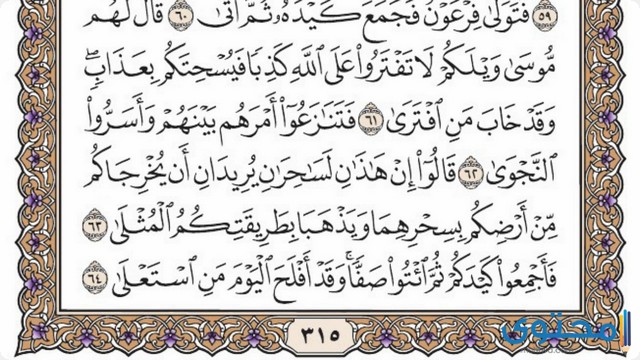 ٥٩ فَتَوَلَّىٰ فِرْعَوْنُ فَجَمَعَ كَيْدَهُۥ ثُمَّ أَتَىٰ ٦٠ قَالَ لَهُم
مُّوسَىٰ وَيْلَكُمْ لَا تَفْتَرُوا۟ عَلَى ٱللَّهِ كَذِبًا فَيُسْحِتَكُم بِعَذَابٍۖ
وَقَدْ خَابَ مَنِ ٱفْتَرَىٰ ٦١ فَتَنَٰزَعُوٓا۟ أَمْرَهُم بَيْنَهُمْ وَأَسَرُّوا۟
ٱلنَّجْوَىٰ ٦٢ قَالُوٓا۟ إِنْ هَٰذَٰنِ لَسَٰحِرَٰنِ يُرِيدَانِ أَن يُخْرِجَاكُم
مِّنْ أَرْضِكُم بِسِحْرِهِمَا وَيَذْهَبَا بِطَرِيقَتِكُمُ ٱلْمُثْلَىٰ ٦٣
فَأَجْمِعُوا۟ كَيْدَكُمْ ثُمَّ ٱئْتُوا۟ صَفًّاۚ وَقَدْ أَفْلَحَ ٱلْيَوْمَ مَنِ ٱسْتَعْلَىٰ ٦٤
٣١٥
محتوى